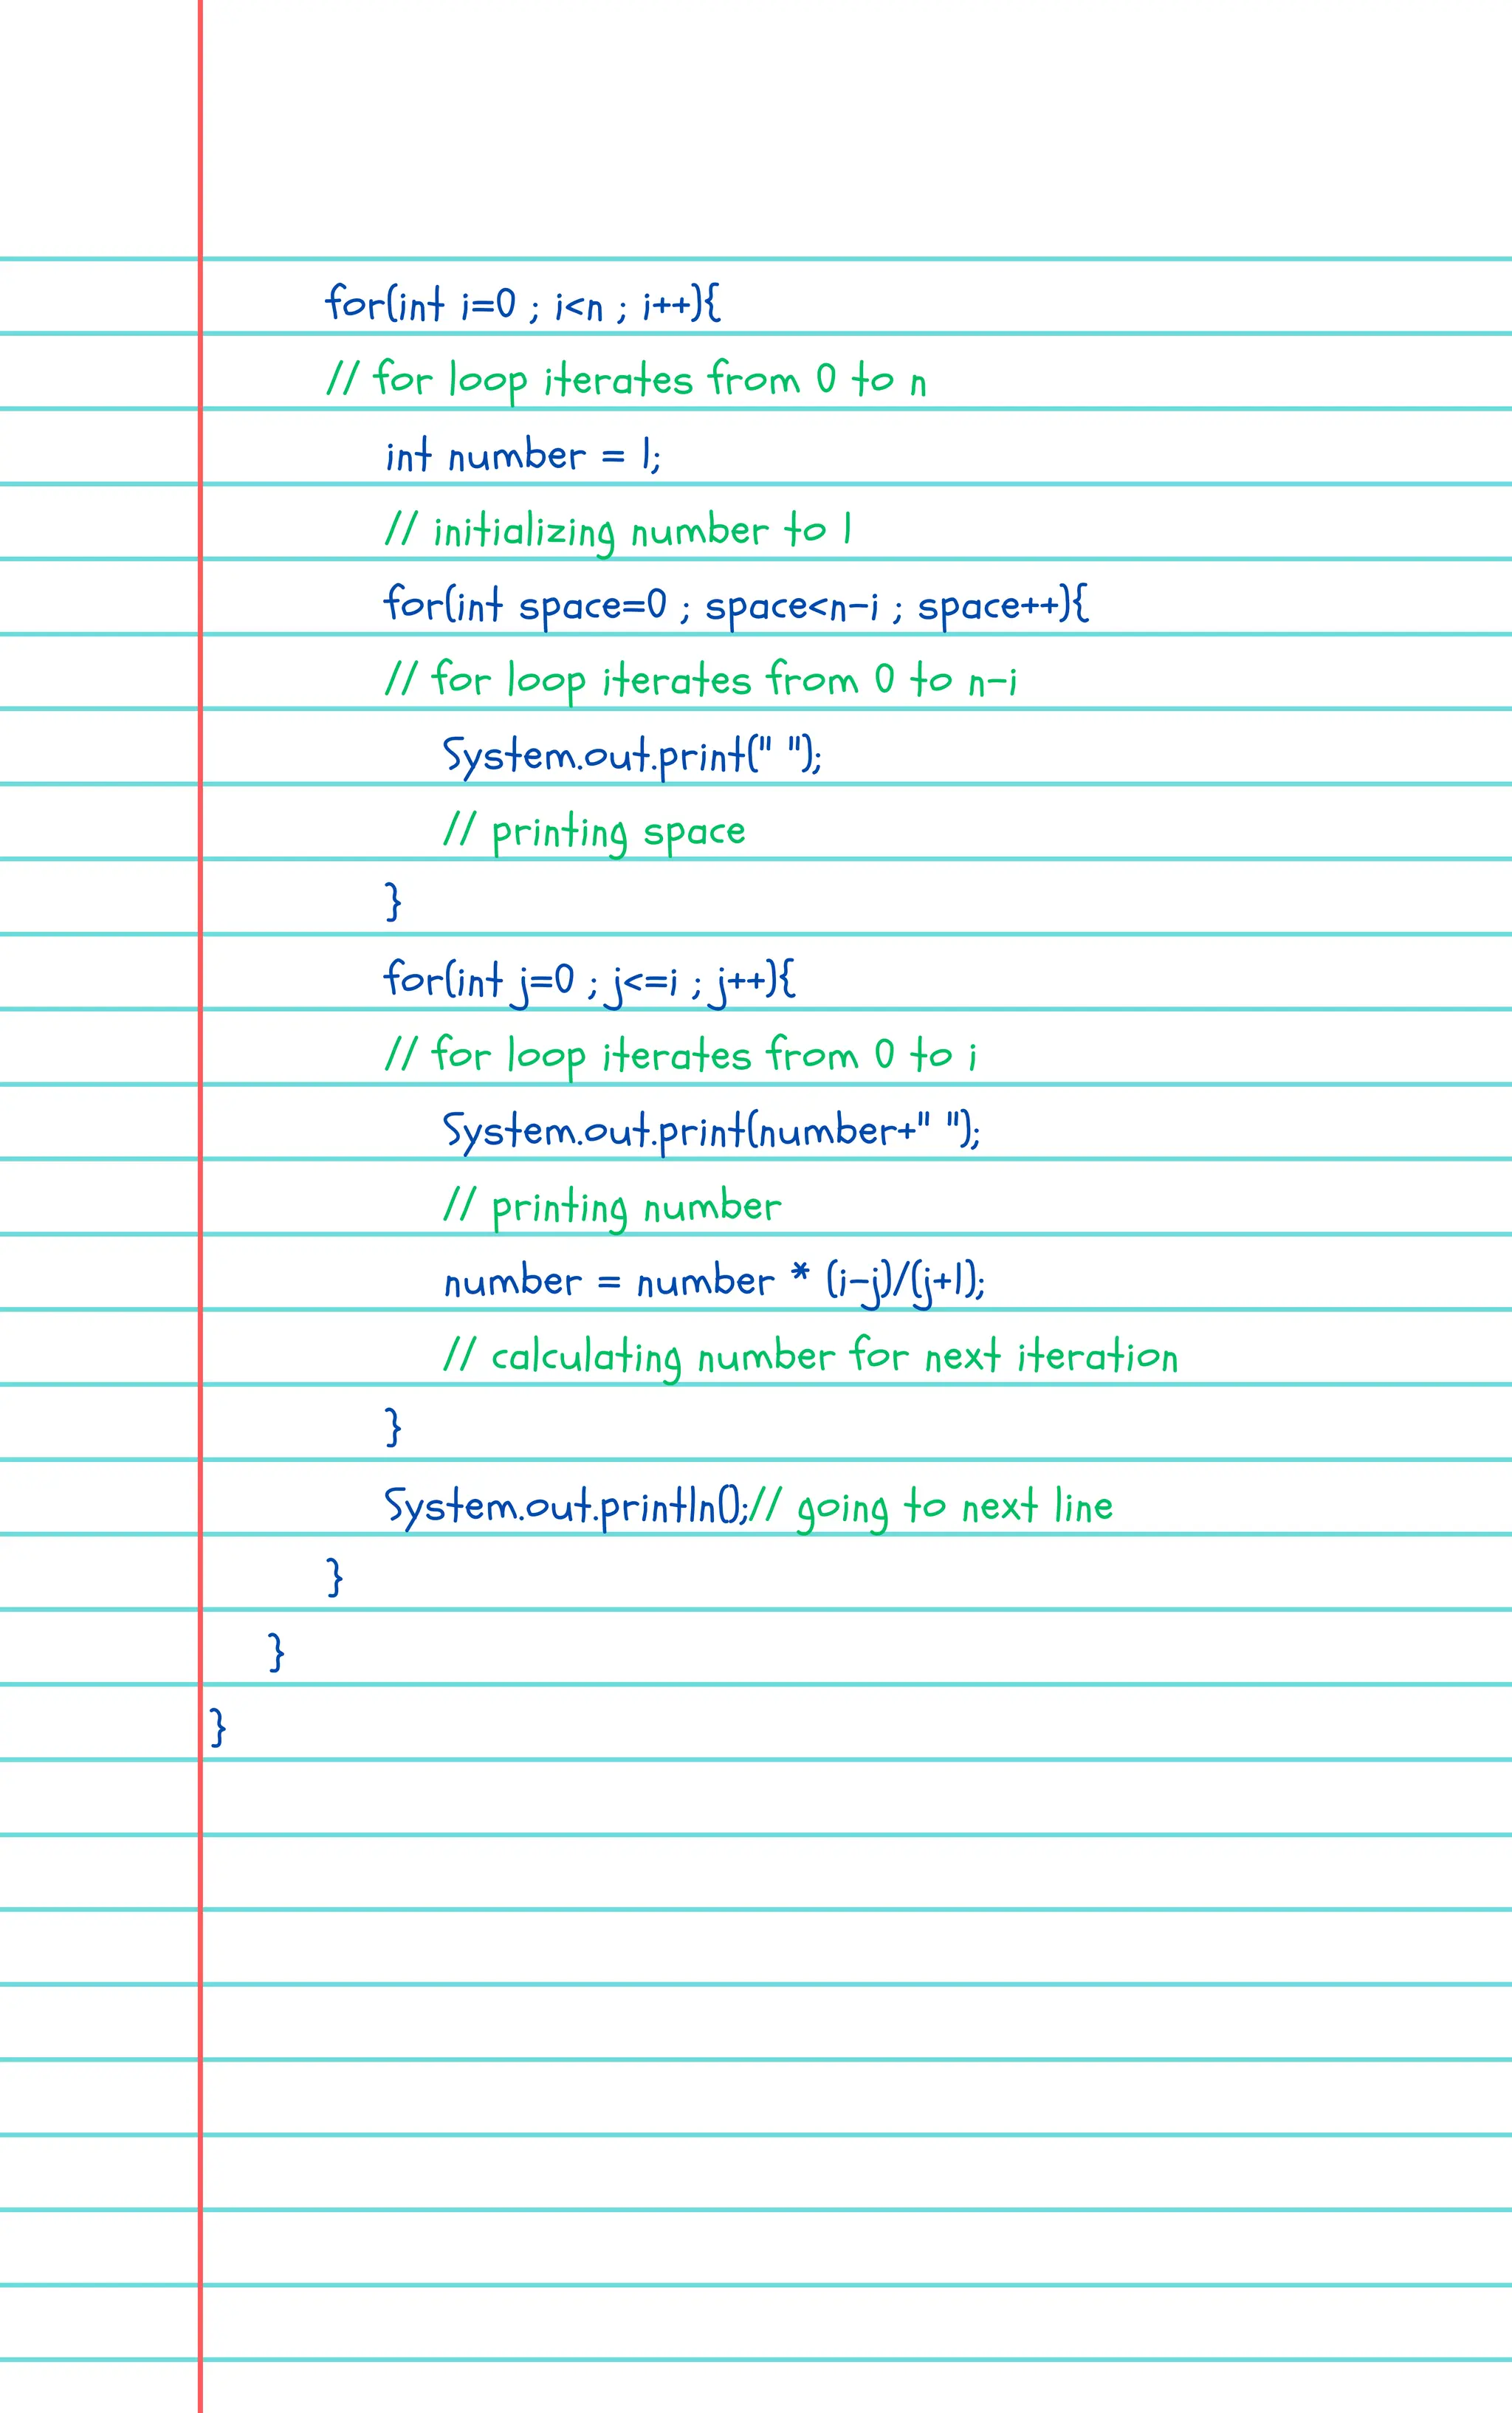 for(int i=0 ; i<n ; i++){
// for loop iterates from 0 to n
int number = 1;
// initializing number to 1
for(int space=0 ; space<n-i ; space++){
// for loop iterates from 0 to n-i
System.out.print(" ");
// printing space
}
for(int j=0 ; j<=i ; j++){
// for loop iterates from 0 to i
System.out.print(number+" ");
// printing number
number = number * (i-j)/(j+1);
// calculating number for next iteration
}
System.out.println();// going to next line
}
}
}